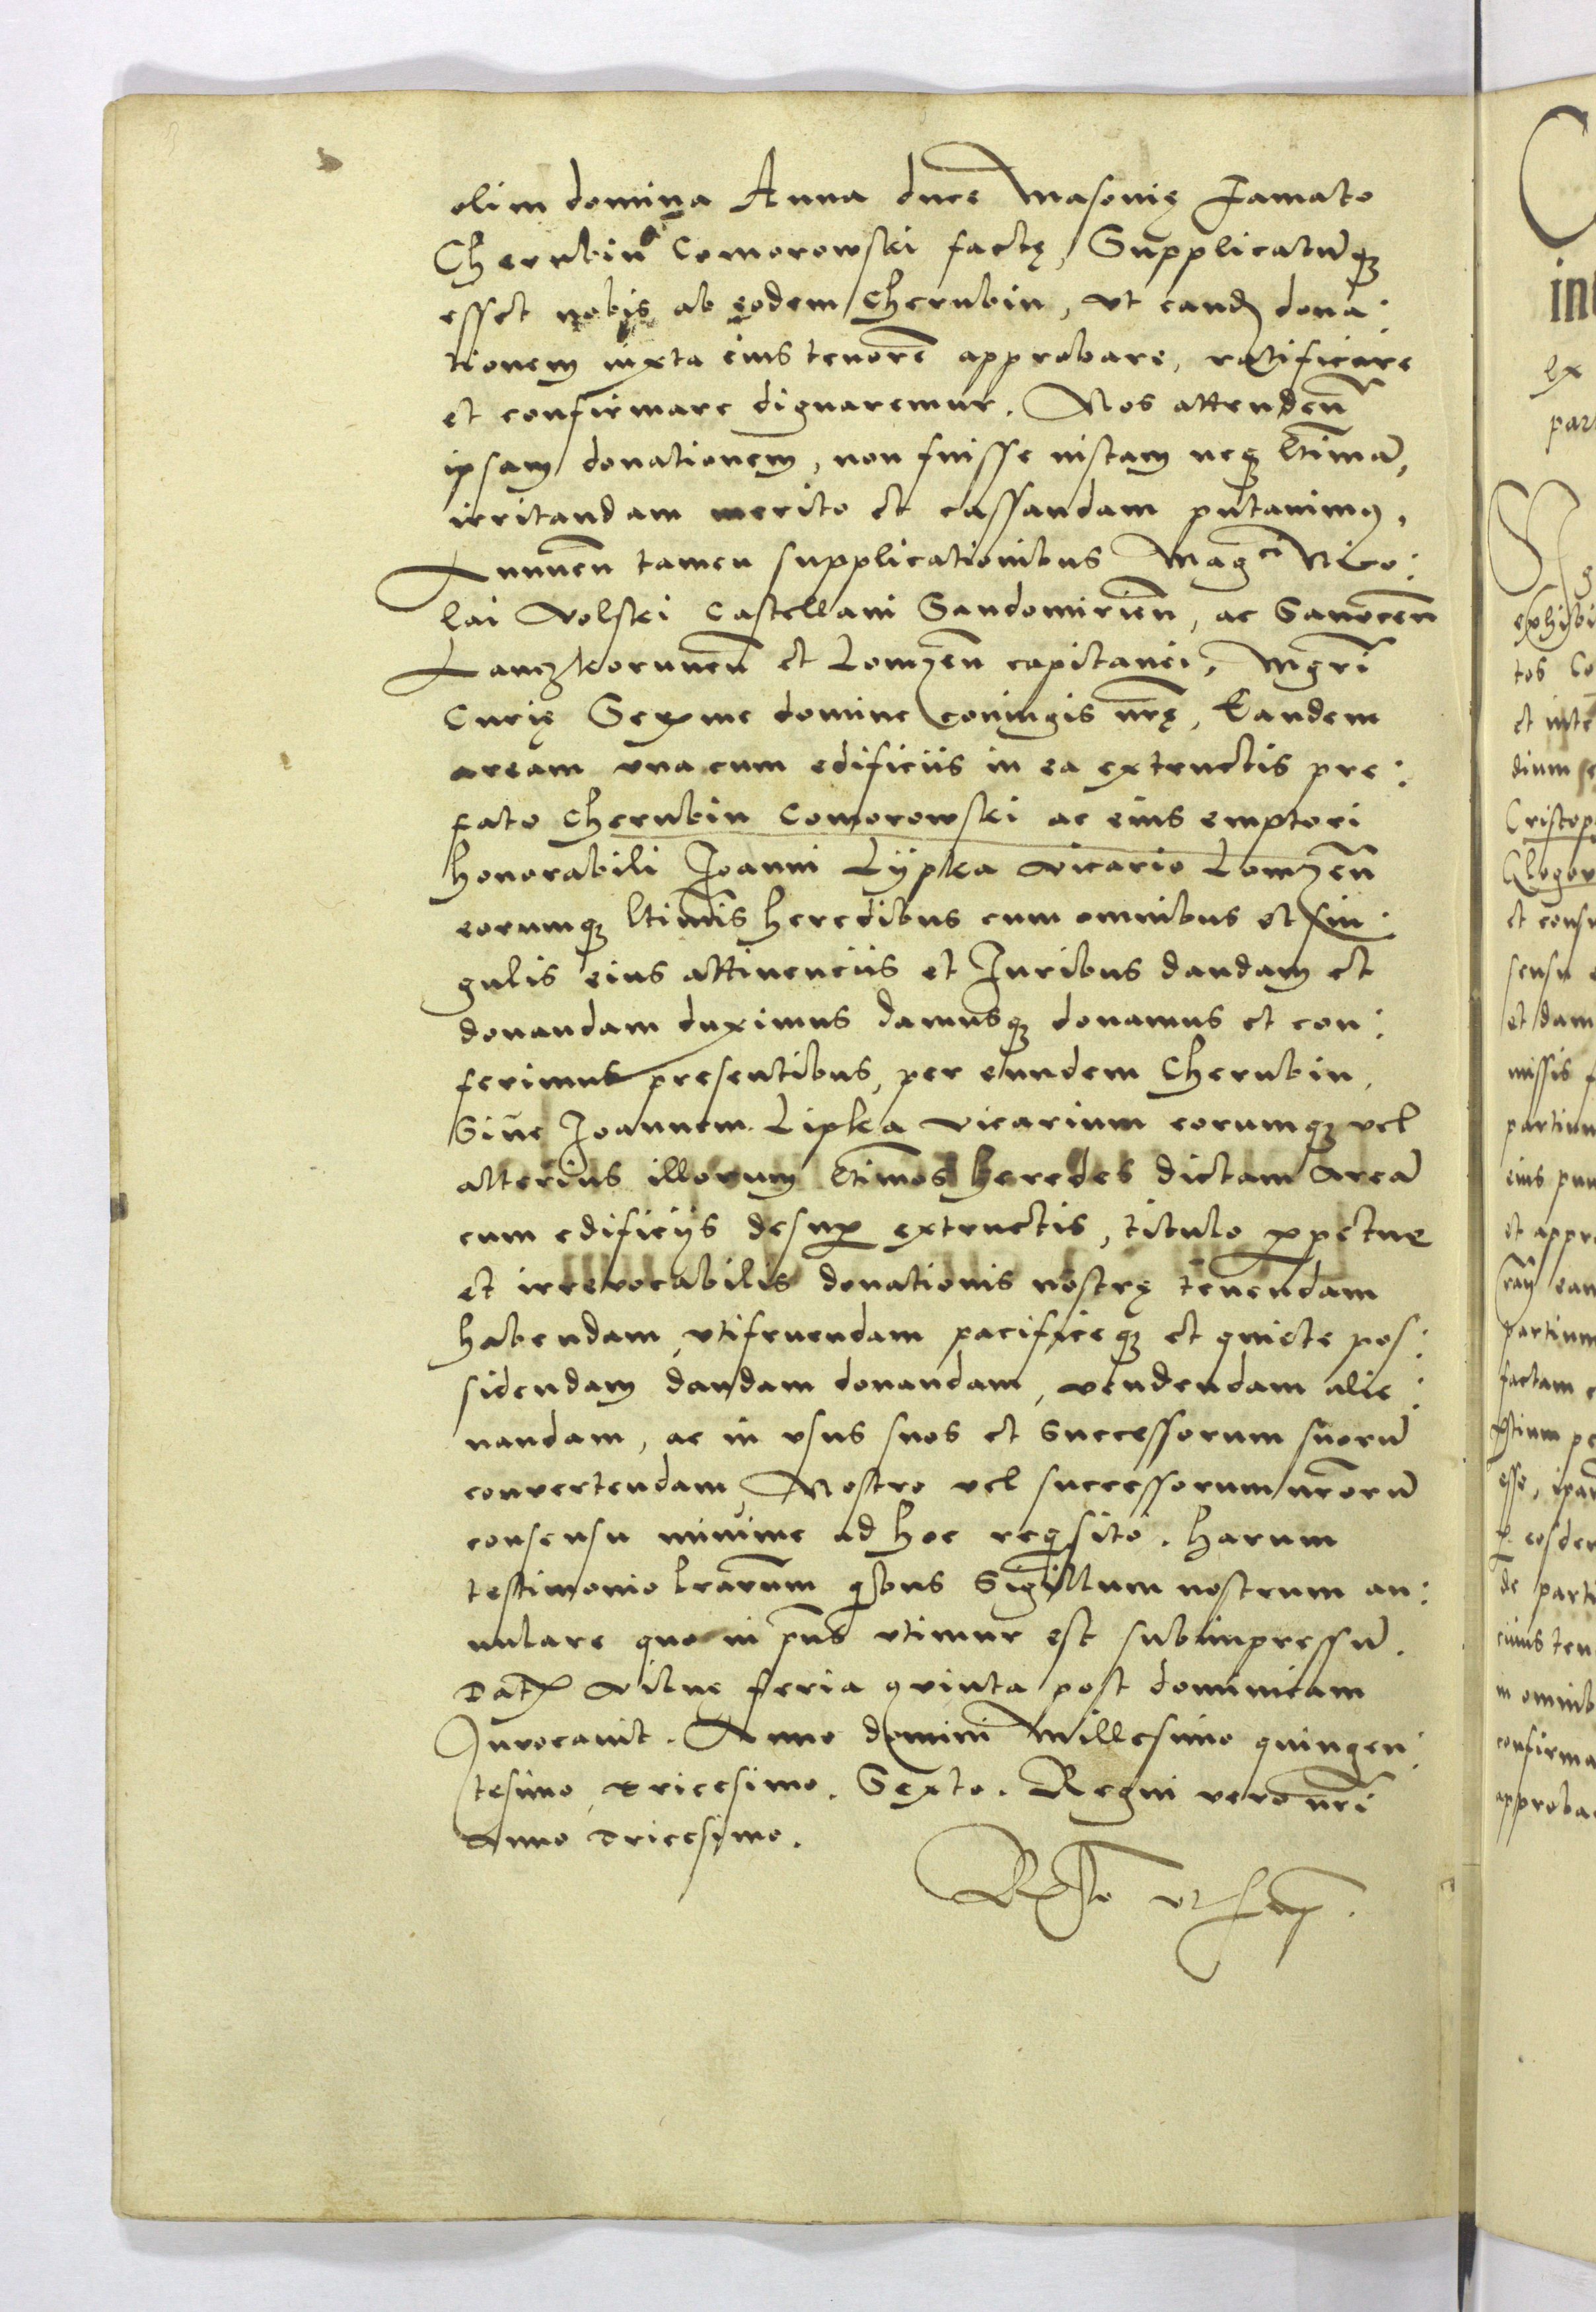 olim domina Anna duce Masovię Famato
Cherubin Comorowski factę, Supplicatūq3
esset nobis ab eodem Cherubin, vt eand dona:
tionem iuxta eius tenorē approbare, ratificare
et confirmare dignaremur. Nos attendeñ
ipsam donationem, non fuisse iustam neq ltimā,
irritandam merito et cassandam putavimꝰ,
Annueñ tamen supplicationibus Mag^ci Nico:
lai Volski Castellani Sandomirieñ, ac Sanoceñ
Lanczkoruneñ et Lomzeñ capitanei, Mgrī
Curię Serme domine coniugis nrę, Eandem
aream vna cum edificiis in ea extructis pre:
fato Cherubin Comorowski ac eius emptori
honorabili Joanni Lypka vicario Lomzeñ
eorumq3 ltimis heredibus cum omnibus et sin:
gulis eius attinenciis et Juribus dandam et
donandam duximus damusq3 donamus et con:
ferimus presentibus, per eundem Cherubin,
Siue Joannem Lipka vicarium eorumq3 vel
alterius illorum ltimos heredes dictam areā
cum edificijs desuꝑ extructis, titulo ꝑpetue
et irrevocabilis donationis nostrę tenendam
habendam vtifruendam pacificeq3 et quiete pos:
sidendam dandam donandam, vendendam alie:
nandam, ac in vsus suos et Successorum suorū
convertendam, Nostro vel successorum nrorū
consensu minime ad hoc reqsito. Harum
testimonio lrarum qbus Sigillum nostrum an:
nulare quo in pñs vtimur est subimpressū.
Dat Vilne feria quinta post dominicam
Invocavit. Anno domini Millesimo quingen:
tesimo, tricesimo. Sexto. Regni vero nri
Anno tricesimo.
Rñto vt sup.